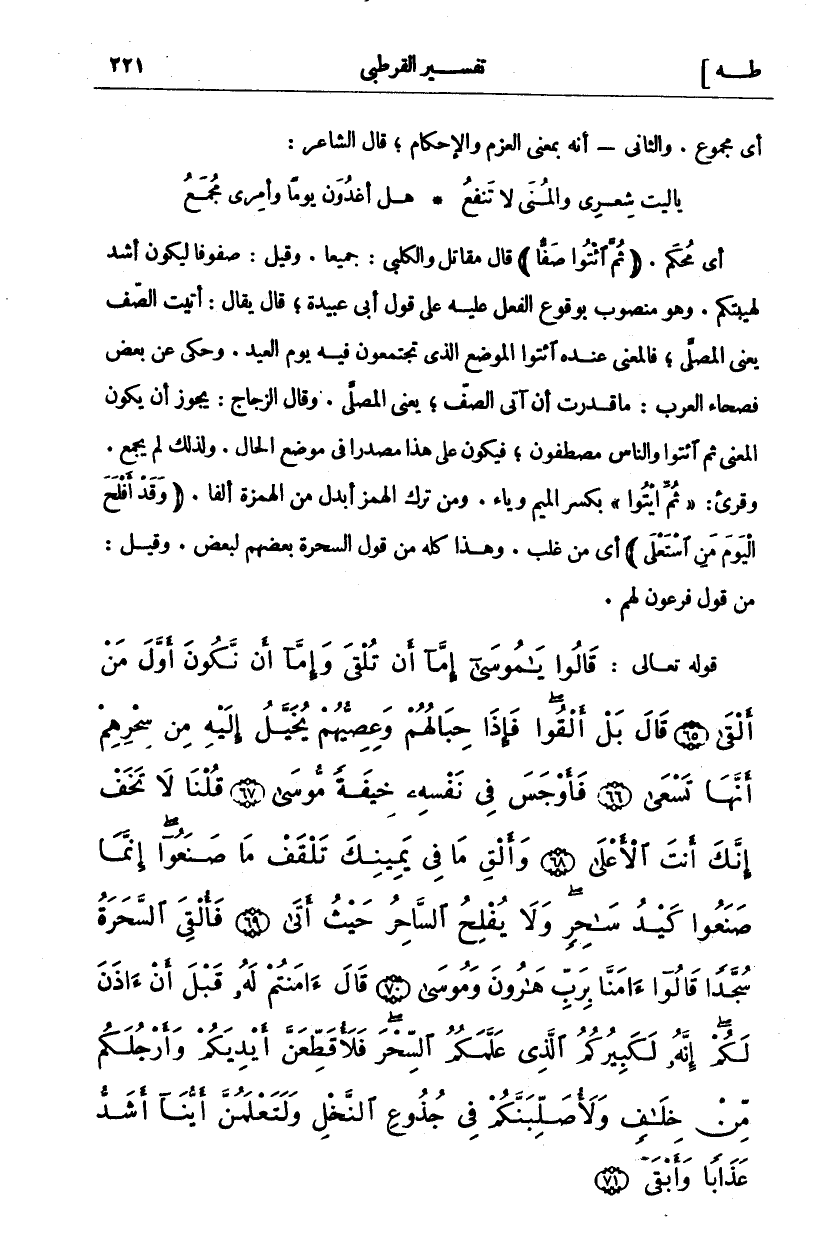 طــه ] تفســير القرطبى ٢٢١
أى مجموع . والثانى — أنه بمعنى العزم والإحكام ؛ قال الشاعر :
ياليت شِعرِى والمُنَى لا تَنفعُ * هـل أغدُوَن يومًا وأمرِى مُجْمَعُ
أى مُحْكَم . ( ثُمَّ ٱئْتُوا صَفًّا ) قال مقاتل والكلبى : جميعا . وقيل : صفوفا ليكون أشد
لهيبتكم . وهو منصوب بوقوع الفعل عليـه على قول أبى عبيدة ؛ قال يقال : أتيت الصّف
يعنى المصلَّى ؛ فالمعنى عنـده آئتوا الموضع الذى تجتمعون فيـه يوم العيد . وحكى عن بعض
فصحاء العرب : ماقدرت أن آتى الصفّ ؛ يعنى المصلَّى . وقال الزجاج : يجوز أن يكون
المعنى ثم آئتوا والناس مصطفون ؛ فيكون على هذا مصدرا فى موضع الحال . ولذلك لم يجمع .
وقرئ: « ثُمِّ ايْتُوا » بكسر الميم وياء . ومن ترك الهمز أبدل من الهمزة ألفا . ( وَقَدْ أَفْلَحَ
الْيَوْمَ مَنِ ٱسْتَعْلَى ) أى من غلب . وهـذا كله من قول السحرة بعضهم لبعض . وقيـل :
من قول فرعون لهم .
قوله تعـالى : قَالُوا يَـٰمُوسَىٰٓ إِمَّآ أَن تُلْقِىَ وَإِمَّآ أَن نَّكُونَ أَوَّلَ مَنْ
أَلْقَىٰ ٦٥ قَالَ بَلْ أَلْقُوا ۖ فَإِذَا حِبَالُهُمْ وَعِصِيُّهُمْ يُخَيَّلُ إِلَيْهِ مِن سِحْرِهِمْ
أَنَّهَـا تَسْعَىٰ ٦٦ فَأَوْجَسَ فِى نَفْسِهِۦ خِيفَـةً مُّوسَىٰ ٦٧ قُلْنَا لَا تَخَفْ
إِنَّكَ أَنتَ ٱلْأَعْلَىٰ ٦٨ وَأَلْقِ مَا فِى يَمِينِـكَ تَلْقَفْ مَا صَـنَعُوٓا ۖ إِنَّمَـا
صَنَعُوا كَيْـدُ سَـٰحِرٍ ۖ وَلَا يُفْلِحُ ٱلسَّاحِرُ حَيْثُ أَتَىٰ ٦٩ فَأُلْقِىَ ٱلسَّحَرَةُ
سُجَّدًا قَالُوٓا ءَامَنَّا بِرَبِّ هَـٰرُونَ وَمُوسَىٰ ٧٠ قَالَ ءَامَنتُمْ لَهُۥ قَبْلَ أَنْ ءَاذَنَ
لَـكُمْ ۖ إِنَّهُۥ لَـكَبِيرُكُمُ ٱلَّذِى عَلَّمَـكُمُ ٱلسِّحْرَ ۖ فَلَأُقَطِّعَنَّ أَيْدِيَكُمْ وَأَرْجُلَـكُم
مِّنْ خِلَـٰفٍ وَلَأُصَـلِّبَنَّكُمْ فِى جُذُوعِ ٱلنَّخْلِ وَلَتَعْلَمُنَّ أَيُّنَـآ أَشَـدُّ
عَذَابًا وَأَبْقَىٰ ٧١